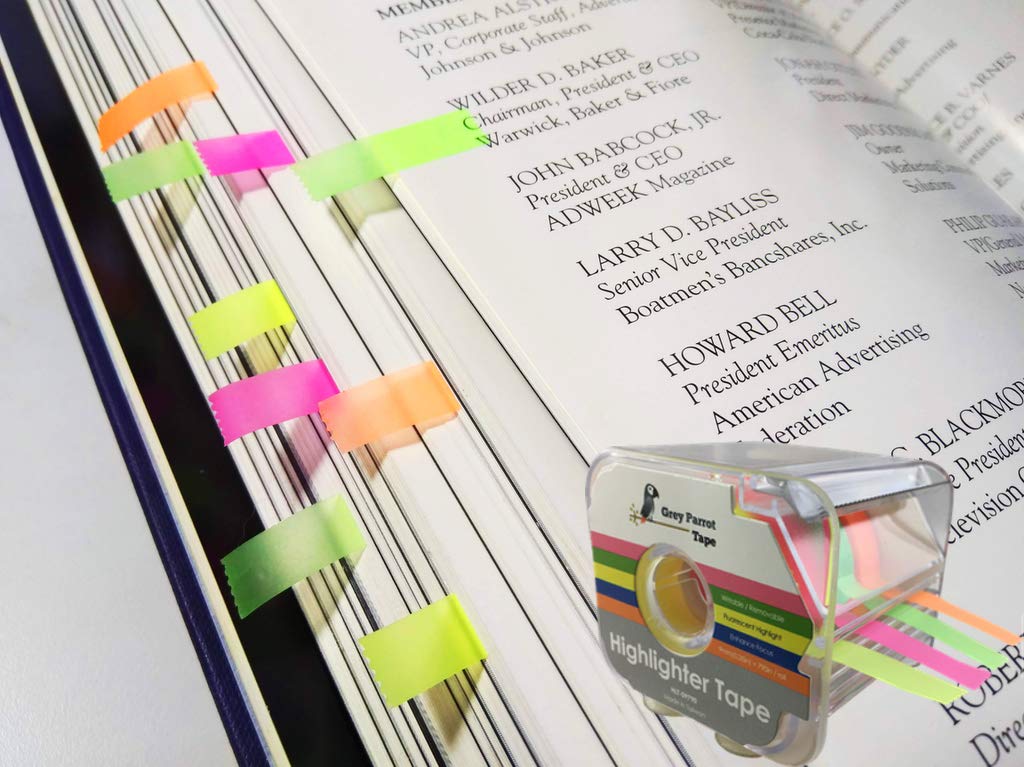 MEMBE
ANDREA ALST
VP, Corporate Staff, Adverti
Johnson & Johnson
WILDER D. BAKER
Chairman, President & CEO
Warwick, Baker & Fiore
JOHN BABCOCK, JR.
President & CEO
ADWEEK Magazine
LARRY D. BAYLISS
Senior Vice President
Boatmen's Bancshares, Inc.
HOWARD BELL
President Emeritus
American Advertising
ederation
C. BLACKMOR
e Presiden
elevision
ROBER
Direc
President
Direct Marke
JIM GOODW
Owner
Marketing
Solutions
PHILIP GU
VP/General
Marke
B. VARNES
Grey Parrot
Tape
Writable / Removable
Fluorescent Highlight
Enhance Focus
Highlighter Tape
Made in Taiwan